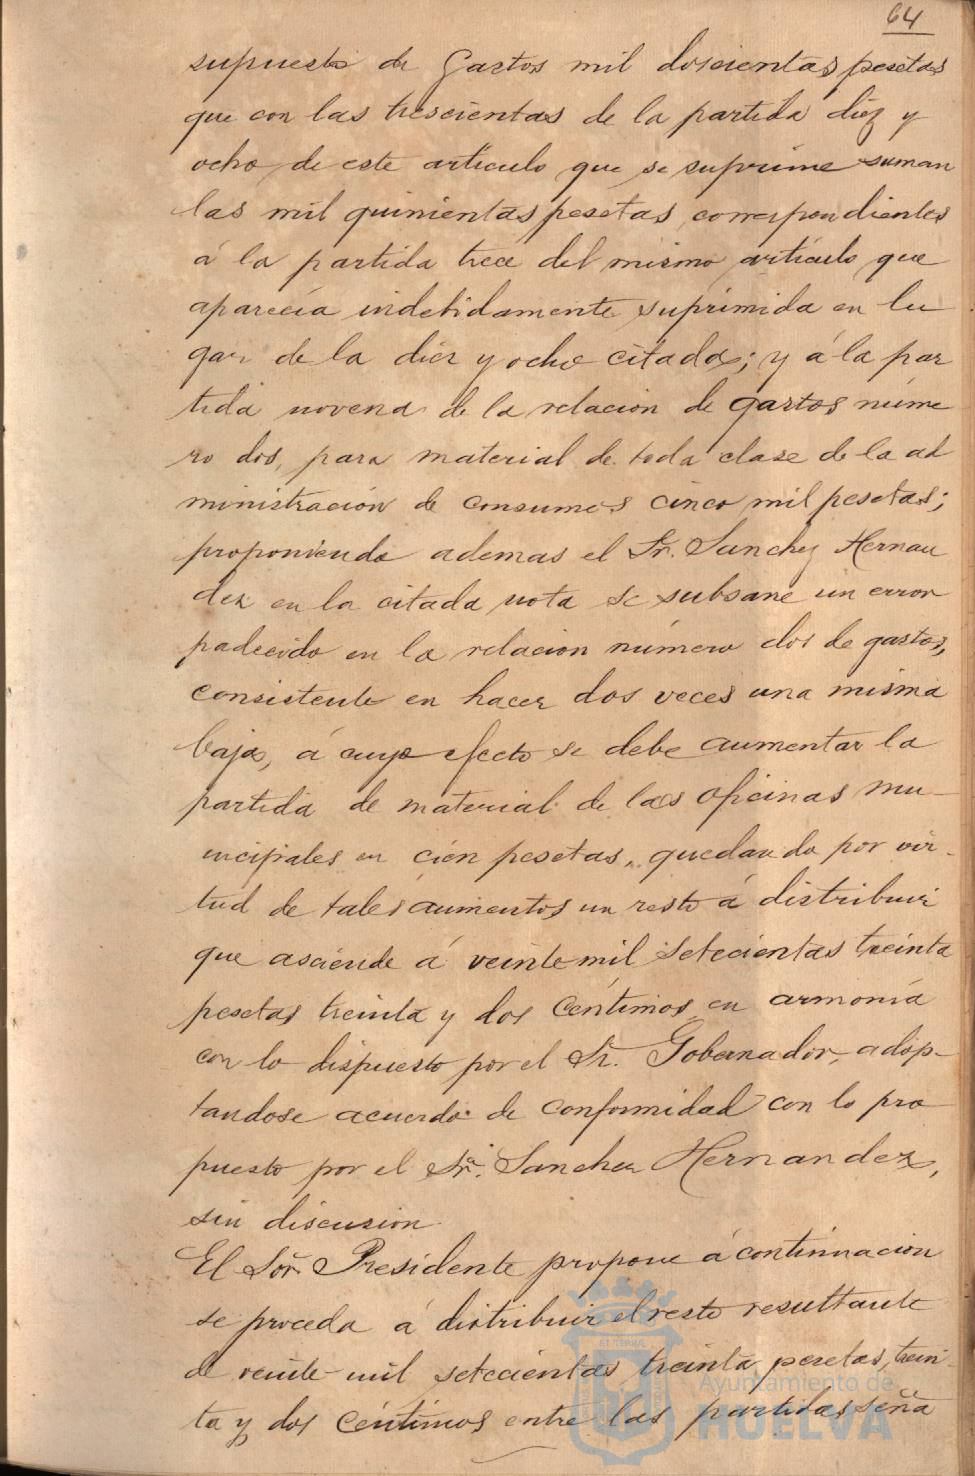 64
supuesto de Gastos mil doscientas pesetas
que con las trescientas de la partida diez y
ocho de este artículo que se suprime suman
las mil quinientas pesetas correspondientes
á la partida trece del mismo artículo que
aparecía indebidamente suprimida en lu
gar de la diez y ocho citada; y á la par
tida novena de la relacion de gastos núme
ro dos, para material de toda clase de la ad
ministración de consumos cinco mil pesetas;
proponiendo ademas el Sr. Sanchez Hernan
dez en la citada nota se subsane un error
padecido en la relacion número dos de gastos,
consistente en hacer dos veces una misma
baja, á cuyo efecto se debe aumentar la
partida de material de las oficinas mu-
nicipales en cien pesetas, quedando por vir-
tud de tales aumentos un resto á distribuir
que asciende á veinte mil setecientas treinta
pesetas treinta y dos céntimos en armonía
con lo dispuesto por el Sr. Gobernador, adop-
tandose acuerdo de conformidad con lo pro
puesto por el Sr. Sanchez Hernandez,
sin discusion.
El Sor. Presidente propone á continuacion
se proceda á distribuir el resto resultante
de veinte mil setecientas treinta pesetas, trein-
ta y dos céntimos entre las partidas seña
Ayuntamiento de
HUELVA